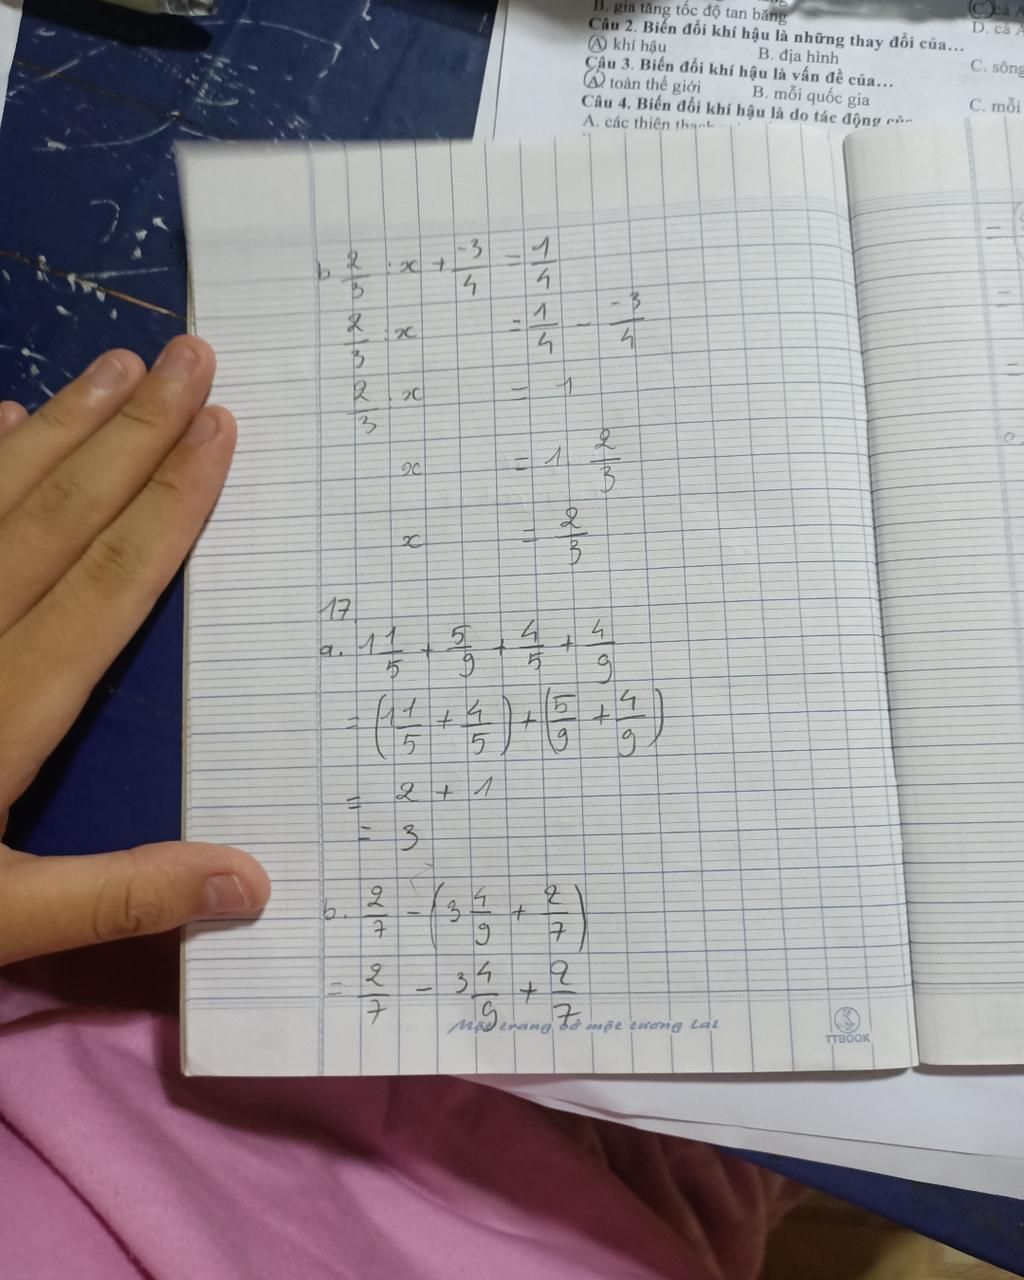 B. gia tăng tốc độ tan băng
Câu 2. Biến đổi khí hậu là những thay đổi của...
D. cả
A. khí hậu
B. địa hình
C. sông
Câu 3. Biến đổi khí hậu là vấn đề của...
A. toàn thế giới
B. mỗi quốc gia
C. mỗi
Câu 4. Biến đổi khí hậu là do tác động
A. các thiên
b 2/3 : x + -3/4 = 1/4
2/3 : x = 1/4 - -3/4
2/3 : x = 1
x = 1 2/3
x = 2/3
17
a. 1 1/5 + 5/9 + 4/5 + 4/9
= (1 1/5 + 4/5) + (5/9 + 4/9)
= 2 + 1
= 3
b. 2/7 - (3 4/9 + 2/7)
= 2/7 - 3 4/9 + 2/7
Một trang vở một tương lai
TTBOOK